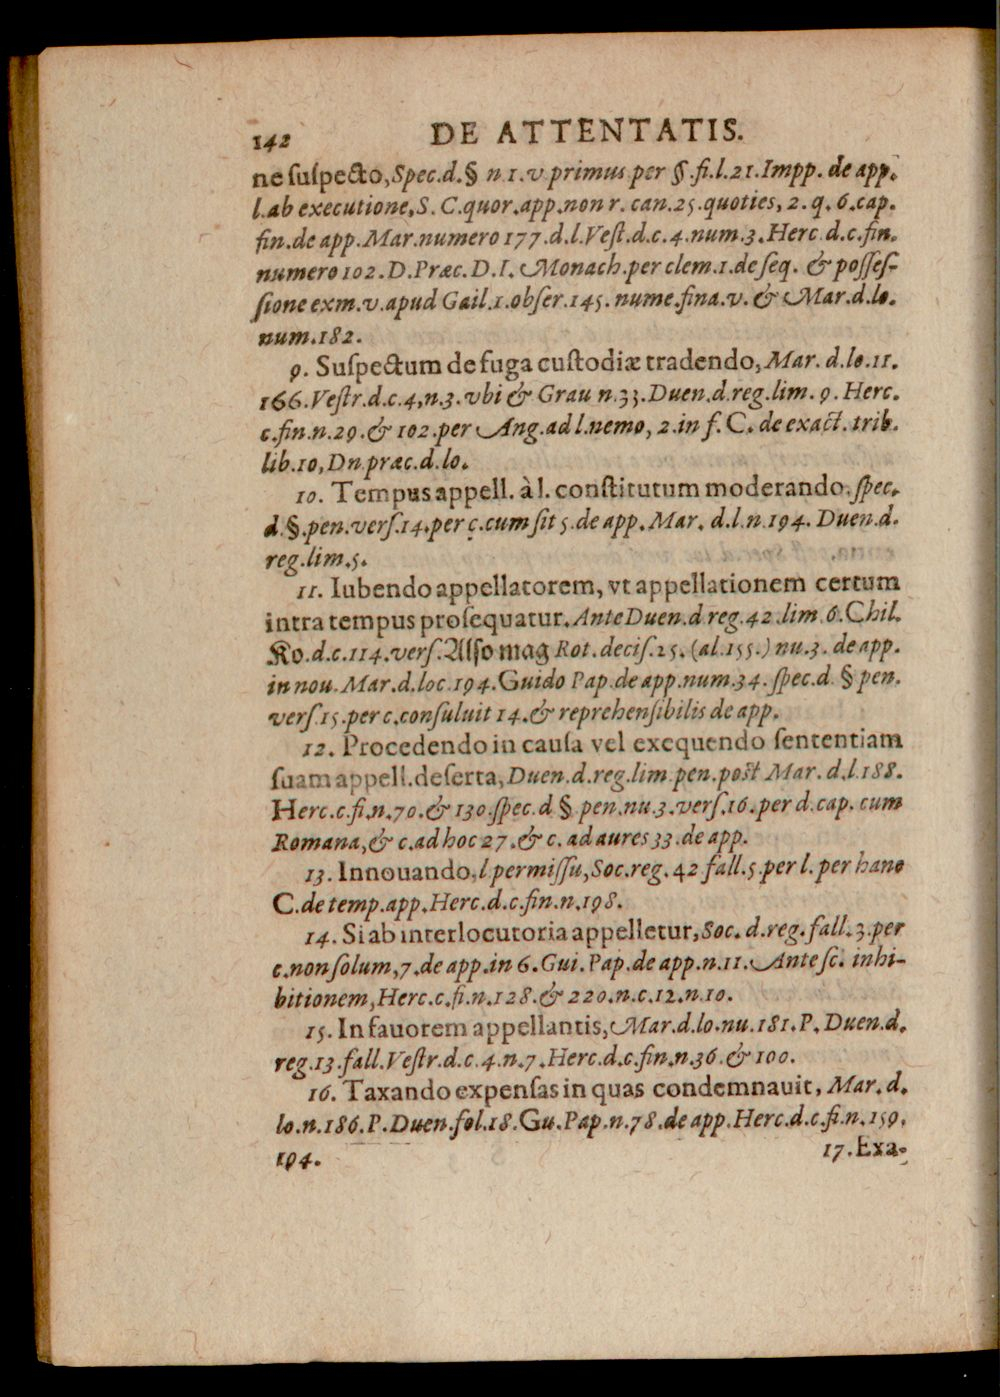 142 DE ATTENTATIS.
ne ſuſpecto, Spec.d.§ n.1.v.primus per §.fi.l.21.Impp. de app.
l.ab executione, S. C.quor.app.non r. can.25.quoties, 2. q. 6.cap.
fin.de app.Mar.numero 177.d.l.Veſt.d.c.4.num.3.Herc.d.c.fin.
numero 102.D.Præc.D.I. Monach.per clem.1.de ſeq. & poſſeſ-
ſione exm.v.apud Gail.1.obſer.145. nume.fina.v. & Mar.d.lo.
num.182.
9. Suſpectum de fuga cuſtodiæ tradendo, Mar. d.lo.11.
166.Veſtr.d.c.4,n.3.vbi & Grau n.33.Duen.d.reg.lim. 9. Herc.
c.fin.n.29.& 102.per Ang.ad l.nemo, 2.in f. C. de exact. trib.
lib.10, Dn præc.d.lo.
10. Tempus appell. à l. conſtitutum moderando. ſpec.
d.§.pen.verſ.14.per c.cum ſit 5.de app.Mar. d.l.n.194. Duen.d.
reg.lim.5.
11. Iubendo appellatorem, vt appellationem certum
intra tempus proſequatur. Ante Duen.d.reg.42.lim.6.Chil.
Ko.d.c.114.verſ.Alſo mag Rot.deciſ.25.(al.155.) nu.3. de app.
in nou.Mar.d.loc.194.Guido Pap.de app.num.34. ſpec.d.§ pen.
verſ.15.per c.conſuluit 14.& reprehenſibilis de app.
12. Procedendo in cauſa vel exequendo ſententiam
ſuam appell.deſerta, Duen.d.reg.lim.pen.poſt Mar. d.l.188.
Herc.c.fi.n.70.& 130.ſpec.d.§ pen.nu.3.verſ.16.per d.cap. cum
Romana, & c.ad hoc 27.& c. ad aures 33.de app.
13. Innouando.l permiſſu, Soc.reg. 42 fall.5.per l. per hanc
C.de temp.app.Herc.d.c.fin.n.198.
14. Si ab interlocutoria appelletur, Soc. d.reg.fall.3.per
c.non ſolum, 7.de app.in 6.Gui.Pap.de app.n.11. Ante ſc. inhi-
bitionem, Herc.c.fi.n.128.& 220.n.c.12.n.10.
15. In fauorem appellantis, Mar.d.lo.nu.181.P. Duen.d.
reg.13.fall.Veſtr.d.c.4.n.7.Herc.d.c.fin.n.36.& 100.
16. Taxando expenſas in quas condemnauit, Mar. d.
lo.n.186.P.Duen.fol.18.Gu.Pap.n.78.de app.Herc.d.c.fi.n.159.
194. 17.Exa-